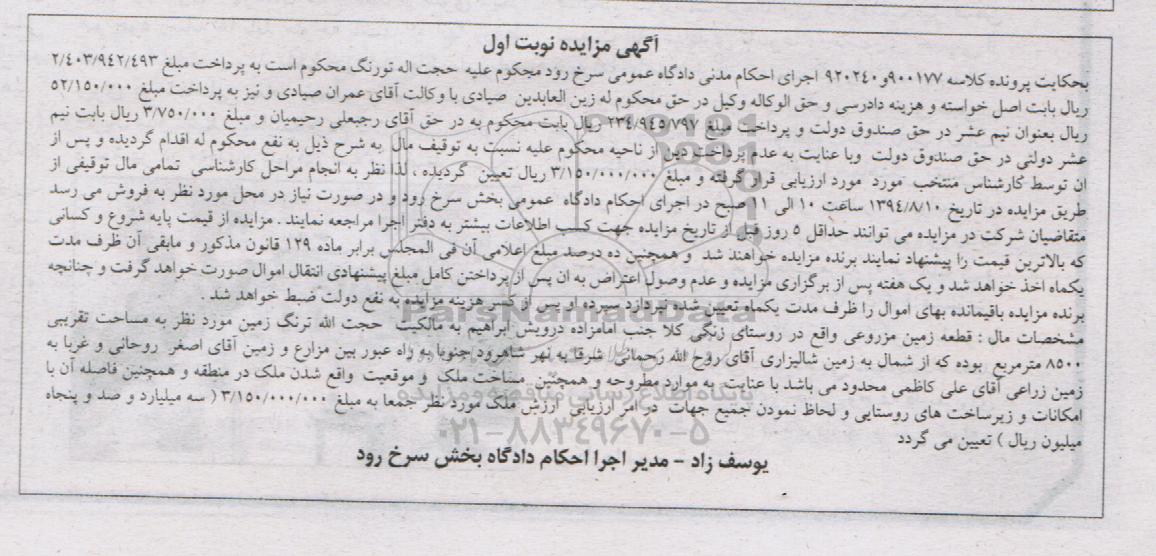 آگهی مزایده نوبت اول
بحکایت پرونده کلاسه ۹۰۰۱۷۷و۹۲۰۲۴۰ اجرای احکام مدنی دادگاه عمومی سرخ رود محکوم علیه حجت اله تورنگ محکوم است به پرداخت مبلغ ۲/۴۰۳/۹۴۲/۴۹۳
ریال بابت اصل خواسته و هزینه دادرسی و حق الوکاله وکیل در حق محکوم له زین العابدین صیادی با وکالت آقای عمران صیادی و نیز به پرداخت مبلغ ۵۲/۱۵۰/۰۰۰
ریال بعنوان نیم عشر در حق صندوق دولت و پرداخت مبلغ ۲۳۴/۹۴۵/۷۹۷ ریال بابت محکوم به در حق آقای رجبعلی رحیمیان و مبلغ ۳/۷۵۰/۰۰۰ ریال بابت نیم
عشر دولتی در حق صندوق دولت وبا عنایت به عدم پرداخت دین از ناحیه محکوم علیه نسبت به توقیف مال به شرح ذیل به نفع محکوم له اقدام گردیده و پس از
ان توسط کارشناس منتخب مورد مورد ارزیابی قرار گرفته و مبلغ ۳/۱۵۰/۰۰۰/۰۰۰ ریال تعیین گردیده ، لذا نظر به انجام مراحل کارشناسی تمامی مال توقیفی از
طریق مزایده در تاریخ ۱۳۹۴/۸/۱۰ ساعت ۱۰ الی ۱۱ صبح در اجرای احکام دادگاه عمومی بخش سرخ رود و در صورت نیاز در محل مورد نظر به فروش می رسد
متقاضیان شرکت در مزایده می توانند حداقل ۵ روز قبل از تاریخ مزایده جهت کسب اطلاعات بیشتر به دفتر اجرا مراجعه نمایند . مزایده از قیمت پایه شروع و کسانی
که بالاترین قیمت را پیشنهاد نمایند برنده مزایده خواهند شد و همچنین ده درصد مبلغ اعلامی آن فی المجلس برابر ماده ۱۲۹ قانون مذکور و مابقی آن ظرف مدت
یکماه اخذ خواهد شد و یک هفته پس از برگزاری مزایده و عدم وصول اعتراض به ان پس از پرداختن کامل مبلغ پیشنهادی انتقال اموال صورت خواهد گرفت و چنانچه
برنده مزایده باقیمانده بهای اموال را ظرف مدت یکماه تعیین شده نپردازد سپرده او پس از کسر هزینه مزایده به نفع دولت ضبط خواهد شد .
مشخصات مال : قطعه زمین مزروعی واقع در روستای زنگی کلا جنب امامزاده درویش ابراهیم به مالکیت حجت الله ترنگ زمین مورد نظر به مساحت تقریبی
۸۵۰۰ مترمربع بوده که از شمال به زمین شالیزاری آقای روح الله رحمانی شرقا به نهر شاهرود جنوبا به راه عبور بین مزارع و زمین آقای اصغر روحانی و غربا به
زمین زراعی آقای علی کاظمی محدود می باشد با عنایت به موارد مطروحه و همچنین مساحت ملک و موقعیت واقع شدن ملک در منطقه و همچنین فاصله آن با
امکانات و زیرساخت های روستایی و لحاظ نمودن جمیع جهات در امر ارزیابی ارزش ملک مورد نظر جمعا به مبلغ ۳/۱۵۰/۰۰۰/۰۰۰ ( سه میلیارد و صد و پنجاه
میلیون ریال ) تعیین می گردد
یوسف زاد - مدیر اجرا احکام دادگاه بخش سرخ رود
ParsNamadData
پایگاه اطلاع رسانی مناقصه و مزایده
۰۲۱-۸۸۳۴۹۶۷۰-۵